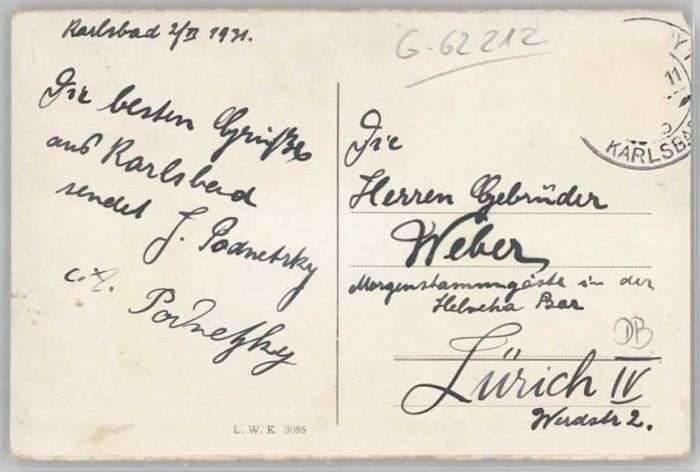 Karlsbad 2/II 1931.
G-62212
Die besten Grüsse
aus Karlsbad
sendet J. Podnetzky
Podnetzky
L. W. K 3085
11
KARLSBAD
Die
Herren Gebrüder
Weber
Morgenstammgäste in der
Helvetia Bar
DB
Zürich IV
Werdstr 2.